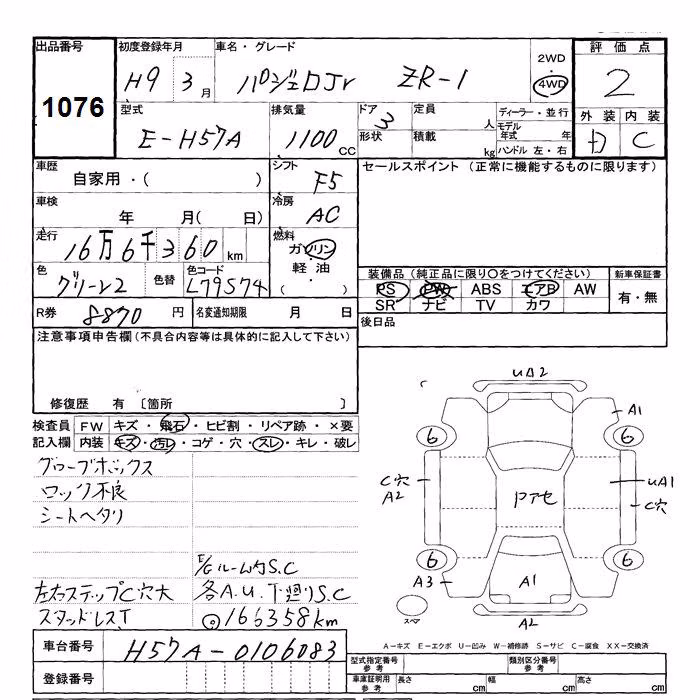 出品番号 1076
初度登録年月 H9 3月
車名・グレード パジェロJr ZR-1
2WD 4WD
評価点 2
外装 内装 C
型式 E-H57A
排気量 1100 CC
ドア 3 定員 人
形状 積載 kg
ディーラー・並行
モデル年式 年
ハンドル 左・右
車歴 自家用・( )
シフト F5
セールスポイント (正常に機能するものに限ります)
車検 年 月( 日)
冷房 AC
走行 16万6千360km
燃料 ガソリン 軽油 ・( )
色 グリーン2 色替 色コード L79574
装備品 (純正品に限り○をつけてください) 新車保証書
PS PW ABS エアB AW 有・無
SR ナビ TV カワ
R券 8870円 名変通知期限 月 日
後日品
注意事項申告欄 (不具合内容等は具体的に記入して下さい)
修復歴 有 〔箇所 〕
検査員 FW キズ・飛石・ヒビ割・リペア跡・×要
記入欄 内装 キズ・汚レ・コゲ・穴・スレ・キレ・破レ
グローブボックス
ロック不良
シートヘタリ
E/Gルーム内S.C
左右ステップC穴大 各A.U.下廻りS.C
スタッドレスT ◎166358km
UA2
A1
6 6
C穴 A2
Pアセ
UA1
C穴
6 6
A3
A1
スペア
A2
車台番号 H57A-0106083
登録番号
A-キズ E-エクボ U-凹み W-補修跡 S-サビ C-腐食 XX-交換済
型式指定番号 参考 類別区分番号 参考
車庫証明用 参考 長さ cm 幅 cm 高さ cm